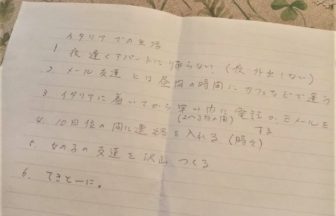 イタリアでの生活
1 夜遅くアパートに帰らない (夜 外出しない)
2. メール友達とは昼間の時間にカフェなどで逢う
3 イタリアに着いてから 以内に電話か、Eメールを
(2〜3カ月間) する
4. 10日位の間に連絡を入れる (時々)
5. 女の子の友達を沢山つくる
6. てきとーに。